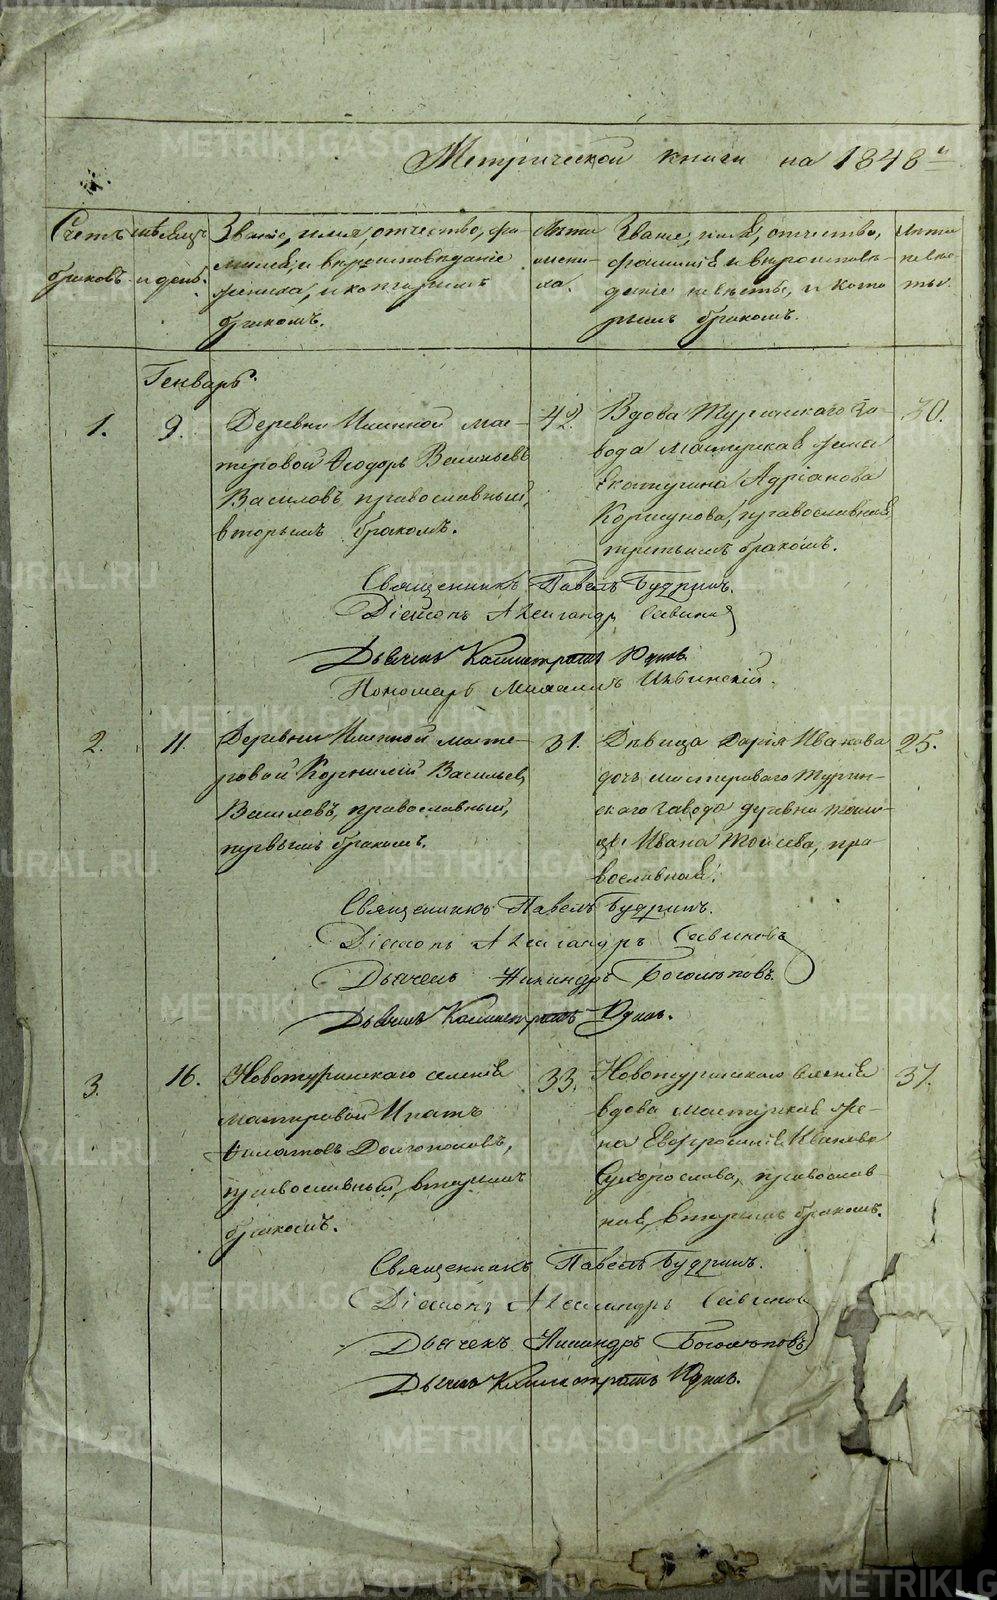 Метрической книги на 1848й
Счетъ браковъ
мѣсяцъ и день.
Званіе, имя, отчество, фа-
милія, и вѣроисповѣданіе
жениха, и которымъ
бракомъ.
Лѣта
жени-
ха.
Званіе, имя, отчество,
фамилія и вѣроисповѣ-
даніе невѣсты, и кото
рымъ бракомъ.
Лѣта
невѣс
ты.
Генварь.
1.
9.
Деревни Именной мас-
теровой Ѳеодоръ Васильевъ
Василовъ православный,
вторымъ бракомъ.
42.
Вдова Туринскаго за-
вода мастерская жена
Екатерина Адріанова
Коршунова, православная
третьимъ бракомъ.
30.
Священникъ Павелъ Будринъ.
Діаконъ Александръ Савиновъ
Дьячекъ Калистратъ Юдинъ
Пономарь Михаилъ Ивинскій.
2.
11.
Деревни Именной масте-
ровой Корнилій Васильевъ
Василовъ, православный,
первымъ бракомъ.
31.
Дѣвица Дарія Иванова
дочь мастероваго Турин-
скаго завода деревни
Ивана Мойсева, пра-
вославная.
25.
Священникъ Павелъ Будринъ.
Діаконъ Александръ Савиновъ
Дьячекъ Никандръ Боголѣповъ.
Дьячекъ Калистратъ Юдинъ.
3.
16.
Новотуринскаго селенія
мастеровой Ипатъ
Филатовъ Долгополовъ,
православный, вторымъ
бракомъ.
33.
Новотуринскаго селенія
вдова мастерская же-
на Евфросинія Иванова
Сухорослова, православ-
ная, вторымъ бракомъ.
37.
Священникъ Павелъ Будринъ.
Діаконъ Александръ Савиновъ
Дьячекъ Никандръ Боголѣповъ
Дьячекъ Калистратъ Юдинъ.
METRIKI.GASO-URAL.RU